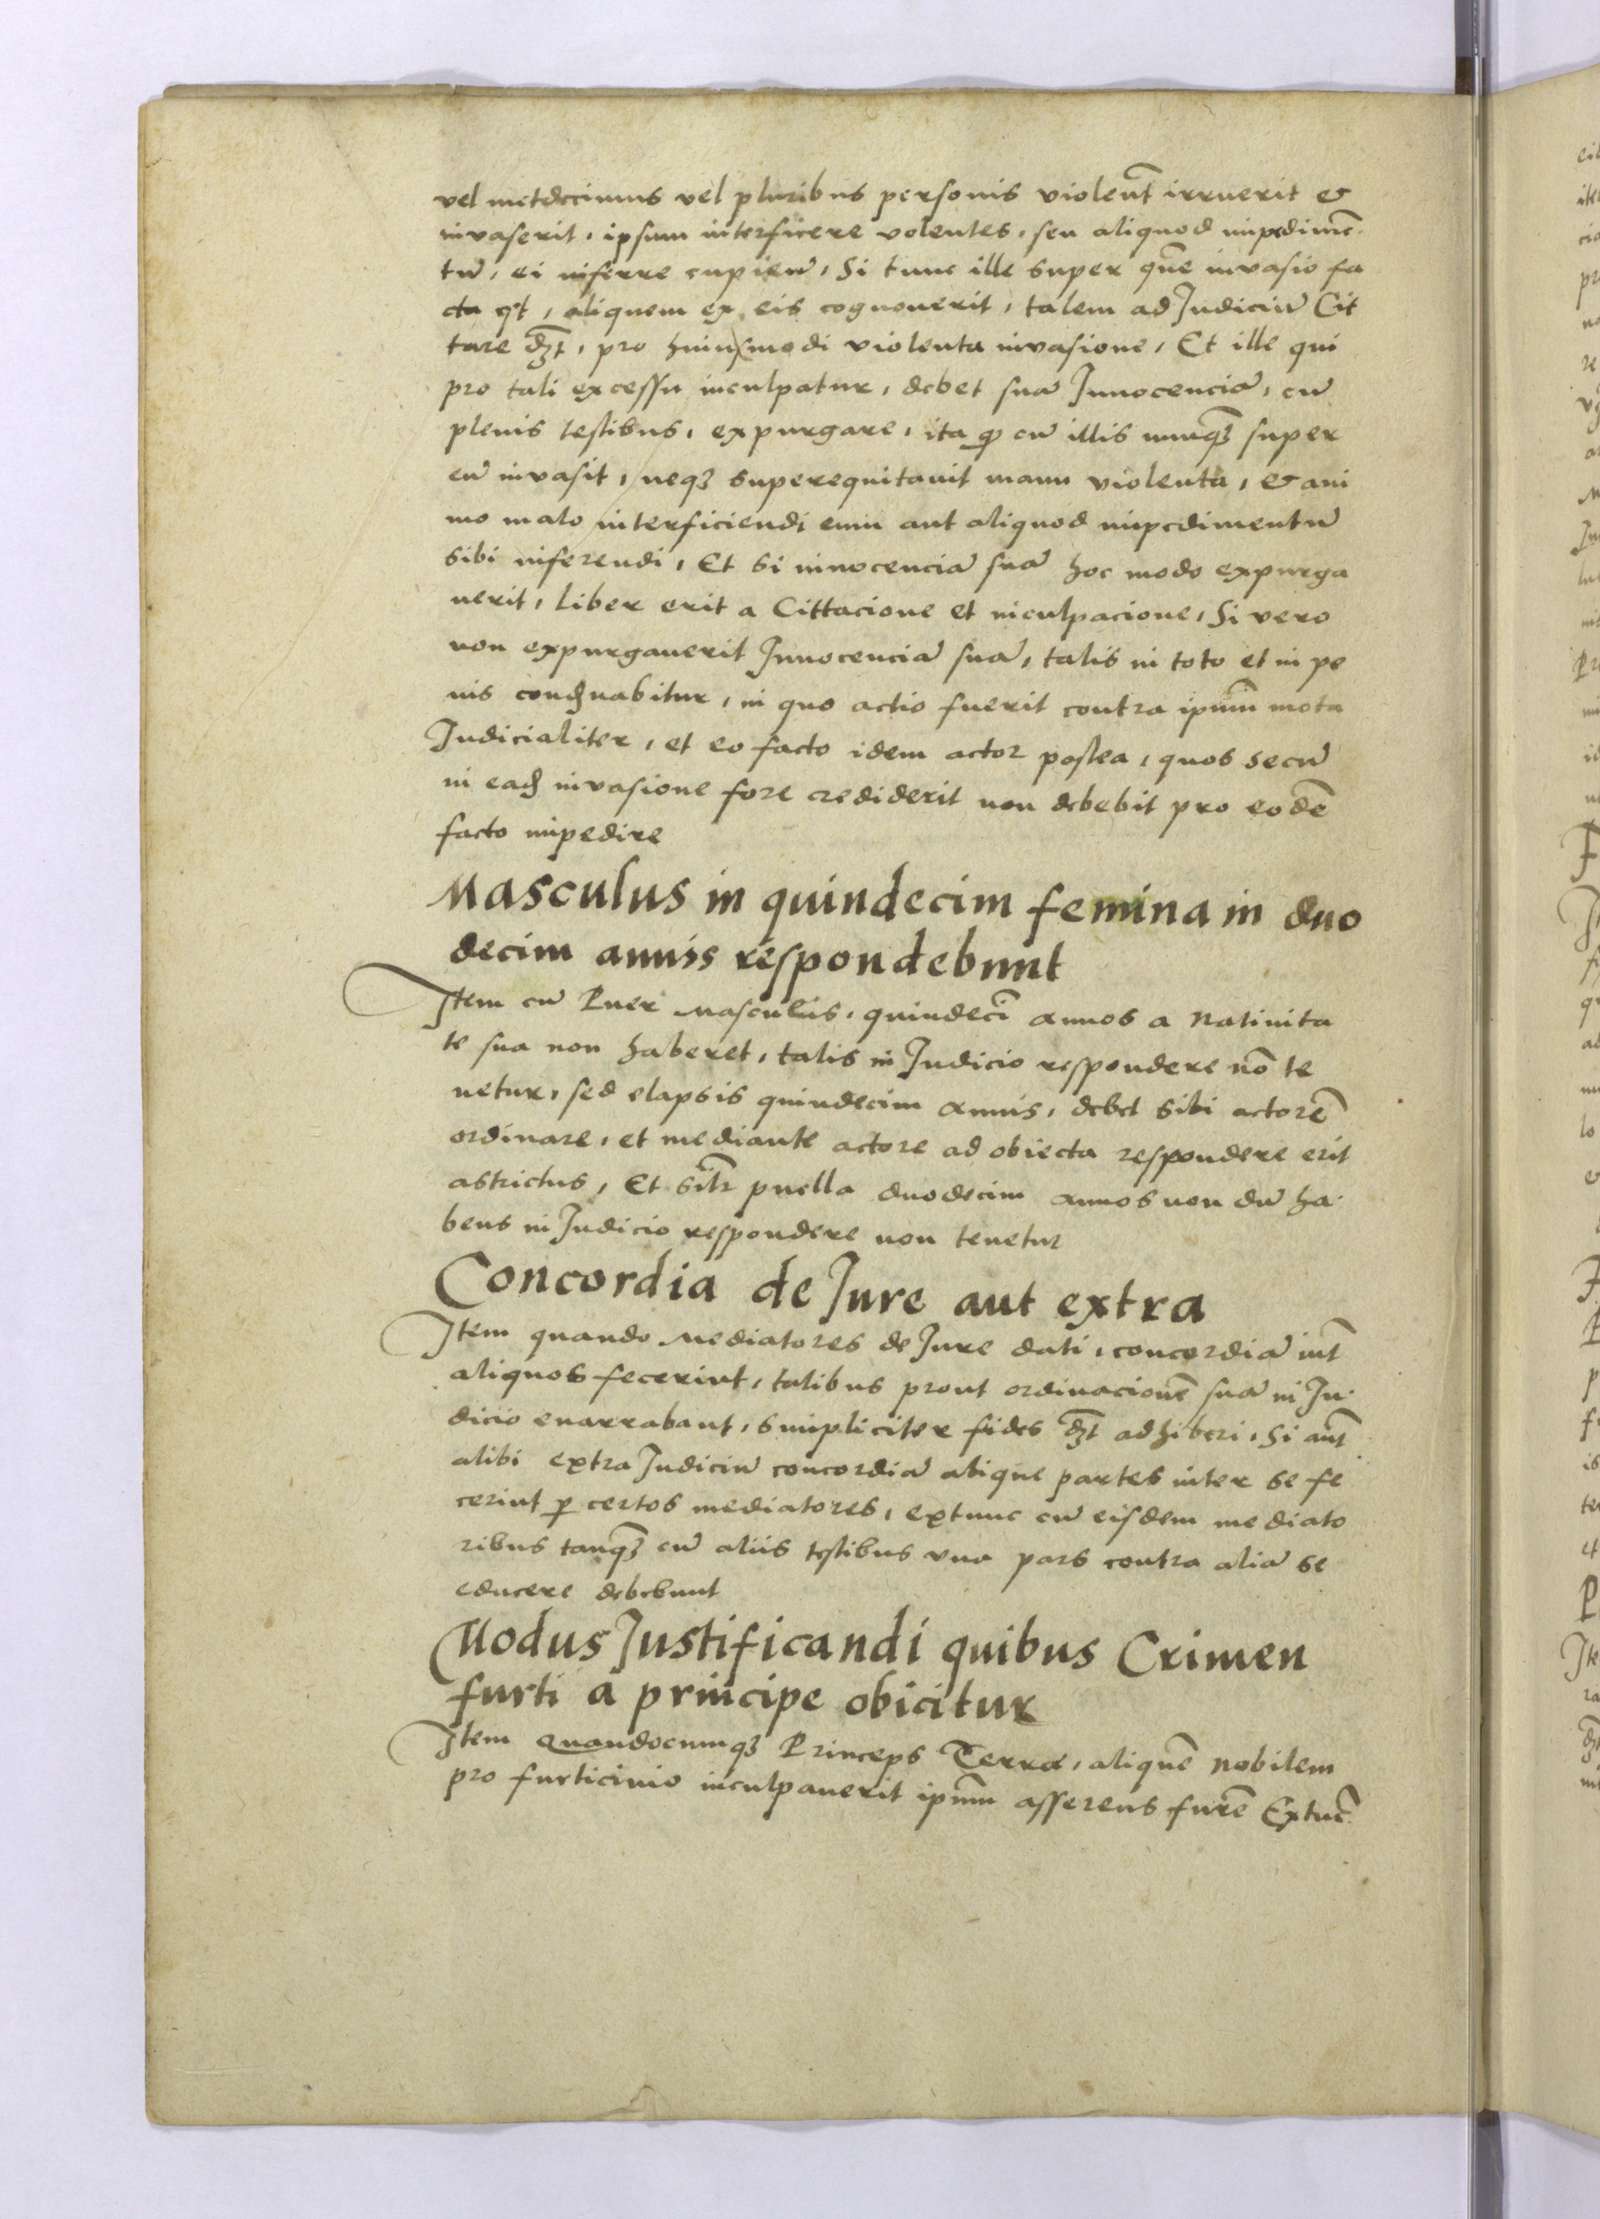 vel metdecimus vel pluribus personis violent̄ irruerit &
invaserit, ipsum interficere volentes, seu aliquod impedimē
tū, ei inferre cupiēn̄, Si tunc ille super quē invasio fa
cta est, aliquem ex eis cognouerit, talem ad Judiciū Cit
tare dꝫt, pro huiusmodi violenta invasione, Et ille qui
pro tali excessu inculpatur, debet suā Innocenciā, cū
plenis testibus, expurgare, ita ꝙ cū illis nunqꝫ super
eū invasit, neqꝫ superequitauit manu violenta, & ani
mo malo interficiendi eum aut aliquod impedimentū
sibi inferendi, Et si innocenciā suā hoc modo expurga
uerit, liber erit a Cittacione et inculpacione, Si vero
non expurgauerit Innocenciā suā, talis in toto et in pe
nis condēnabitur, in quo actio fuerit contra ipm̄ mota
Judicialiter, et eo facto idem actor postea, quos secū
in eadē invasione fore crediderit non debebit pro eodē
facto impedire
Masculus in quindecim femina in duo
decim annis respondebunt
Item cū Puer Masculus, quindecī annos a Natiuita
te sua non haberet, talis in Judicio respondere nō te
netur, sed elapsis quindecim annis, debet sibi actorē
ordinare, et mediante actore ad obiecta respondere erit
astrictus, Et silr̄ puella duodecim annos non dū ha
bens in Judicio respondere non tenetur
Concordia de Jure aut extra
Item quando Mediatores de Jure dati, concordiā int̄
aliquos fecerint, talibus prout ordinacionē suā in Ju
dicio enarrabant, simpliciter fides dꝫt adhiberi, Si aut̄
alibi extra Judiciū concordiā alique partes inter se fe
cerint ꝑ certos mediatores, extunc cū eisdem mediato
ribus tanqꝫ cū aliis testibus vna pars contra aliā se
educere debebunt
Modus Justificandi quibus Crimen
furti a principe obicitur
Item Quandocumqꝫ Princeps Terræ, aliquē nobilem
pro furticinio inculpauerit ipm̄ asserens furē Extūc